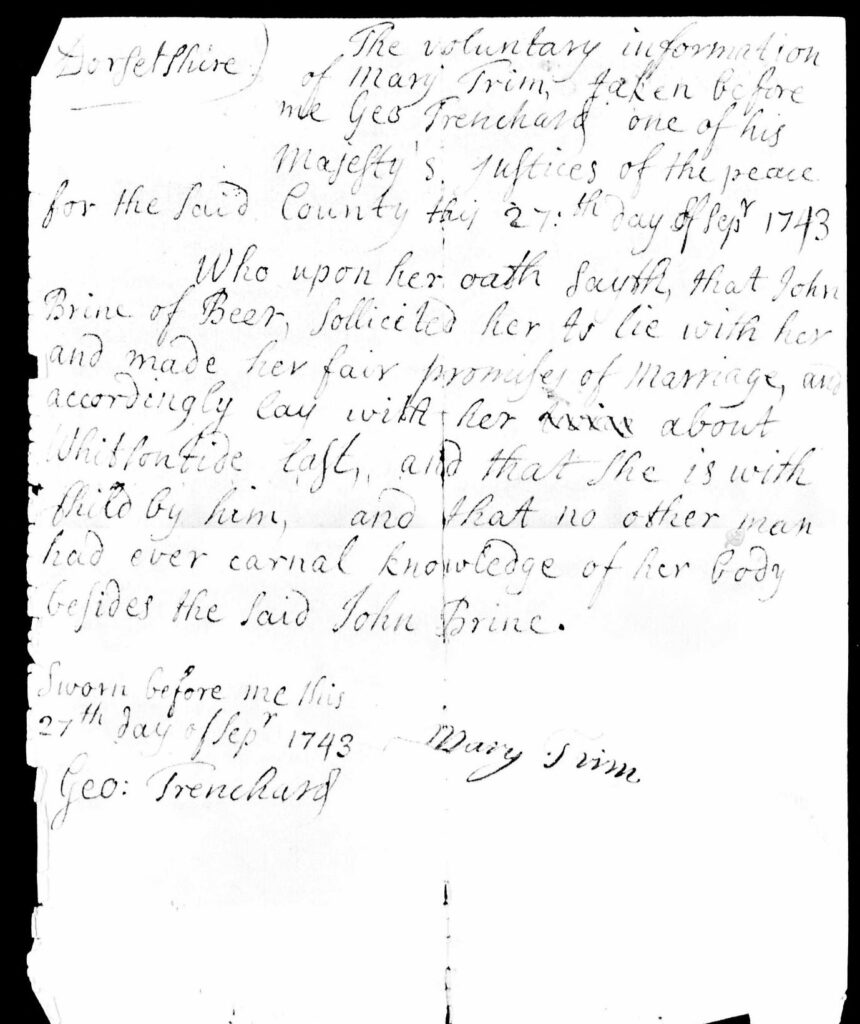 Dorsetshire)
The voluntary information
of Mary Trim, taken before
me Geo Trenchard one of his
Majesty's Justices of the peace
for the said County this 27:th day of Sepr 1743
Who upon her oath sayth, that John
Brine of Beer, sollicited her to lie with her
and made her fair promises of Marriage, and
accordingly lay with her about
Whitsontide last, and that she is with
Child by him, and that no other man
had ever carnal knowledge of her body
besides the said John Brine.
Sworn before me this
27th day of Sepr 1743
Mary Trim
Geo: Trenchard